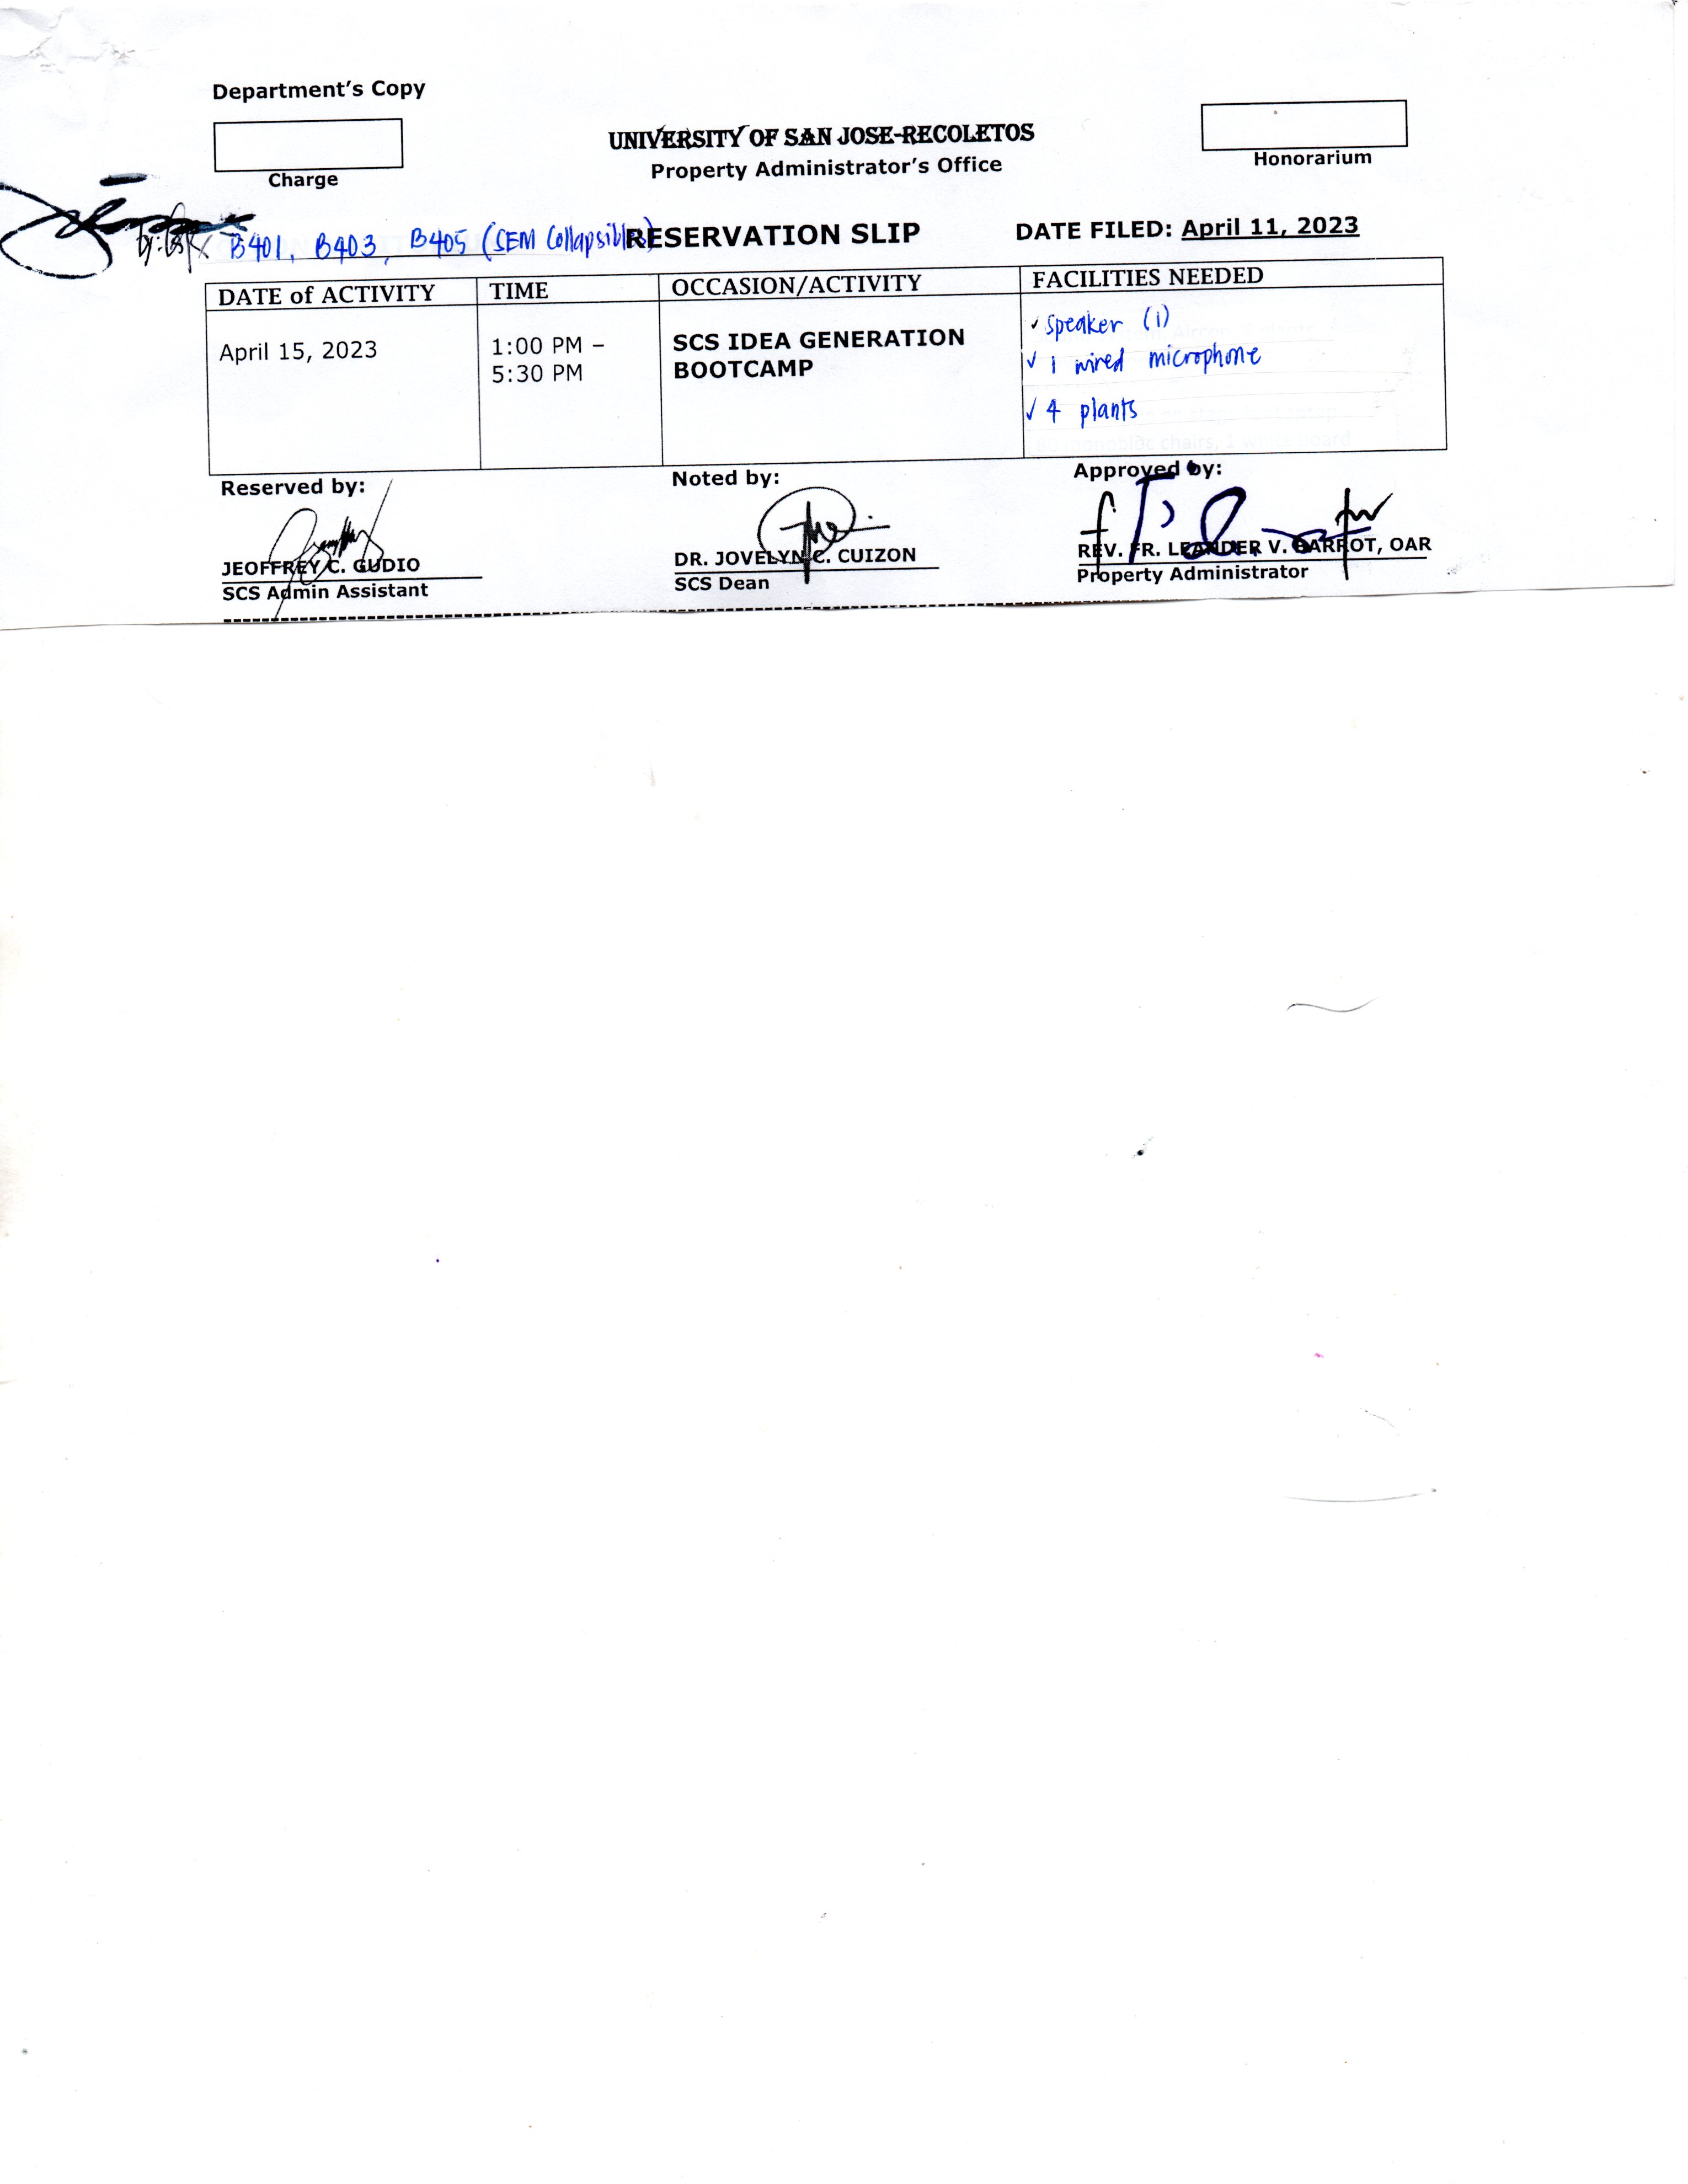 Department's Copy
Charge
UNIVERSITY OF SAN JOSE-RECOLETOS
Property Administrator's Office
Honorarium
B401, B403, B405 (SEM Collapsible)
RESERVATION SLIP
DATE FILED: April 11, 2023
DATE of ACTIVITY TIME OCCASION/ACTIVITY FACILITIES NEEDED
April 15, 2023
1:00 PM –
5:30 PM
SCS IDEA GENERATION
BOOTCAMP
✓ speaker (1)
✓ 1 wired microphone
✓ 4 plants
monobloc chairs, 1 white board
Reserved by:
JEOFFREY C. GUDIO
SCS Admin Assistant
Noted by:
DR. JOVELYN C. CUIZON
SCS Dean
Approved by:
REV. FR. LEANDER V. BARROT, OAR
Property Administrator